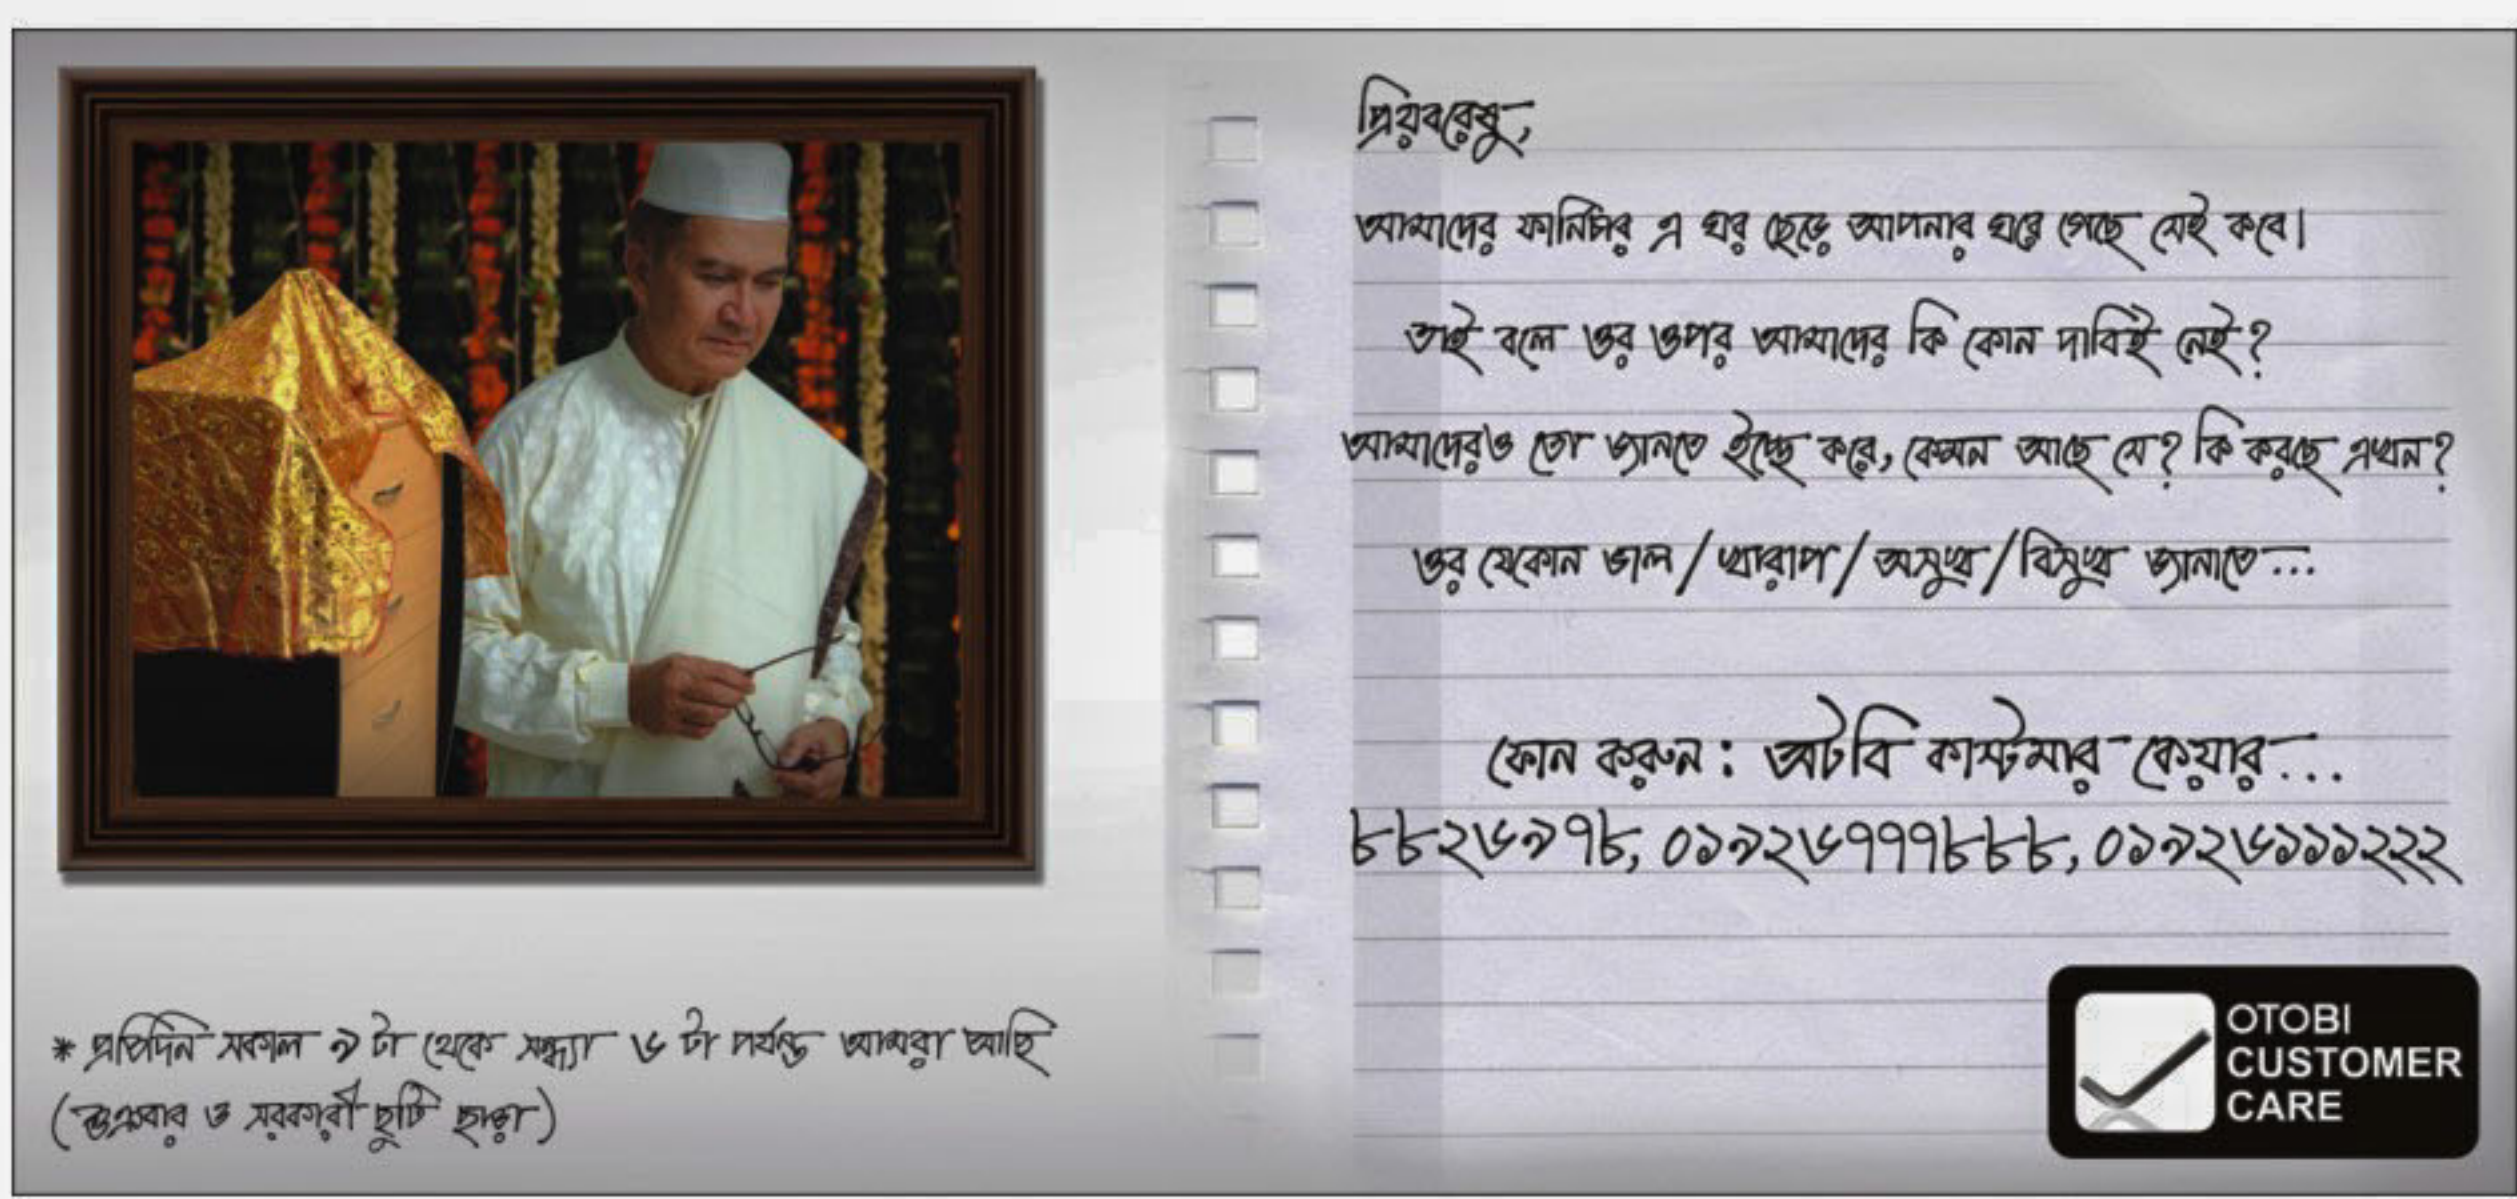 প্রিয়বরেষু,
আমাদের ফার্নিচার এ ঘর ছেড়ে আপনার ঘরে গেছে সেই কবে।
তাই বলে ওর ওপর আমাদের কি কোন দাবিই নেই?
আমাদেরও তো জানতে ইচ্ছে করে, কেমন আছে সে? কি করছে এখন?
ওর যেকোন ভাল/খারাপ/অসুখ/বিসুখ জানাতে...
ফোন করুন: অটবি কাস্টমার কেয়ার...
৮৮২৬৯৭৮, ০১৯২৬৭৭৭৮৮৮, ০১৯২৬১১১২২২
* প্রতিদিন সকাল ৯ টা থেকে সন্ধ্যা ৬ টা পর্যন্ত আমরা আছি
(শুক্রবার ও সরকারী ছুটি ছাড়া)
OTOBI
CUSTOMER
CARE